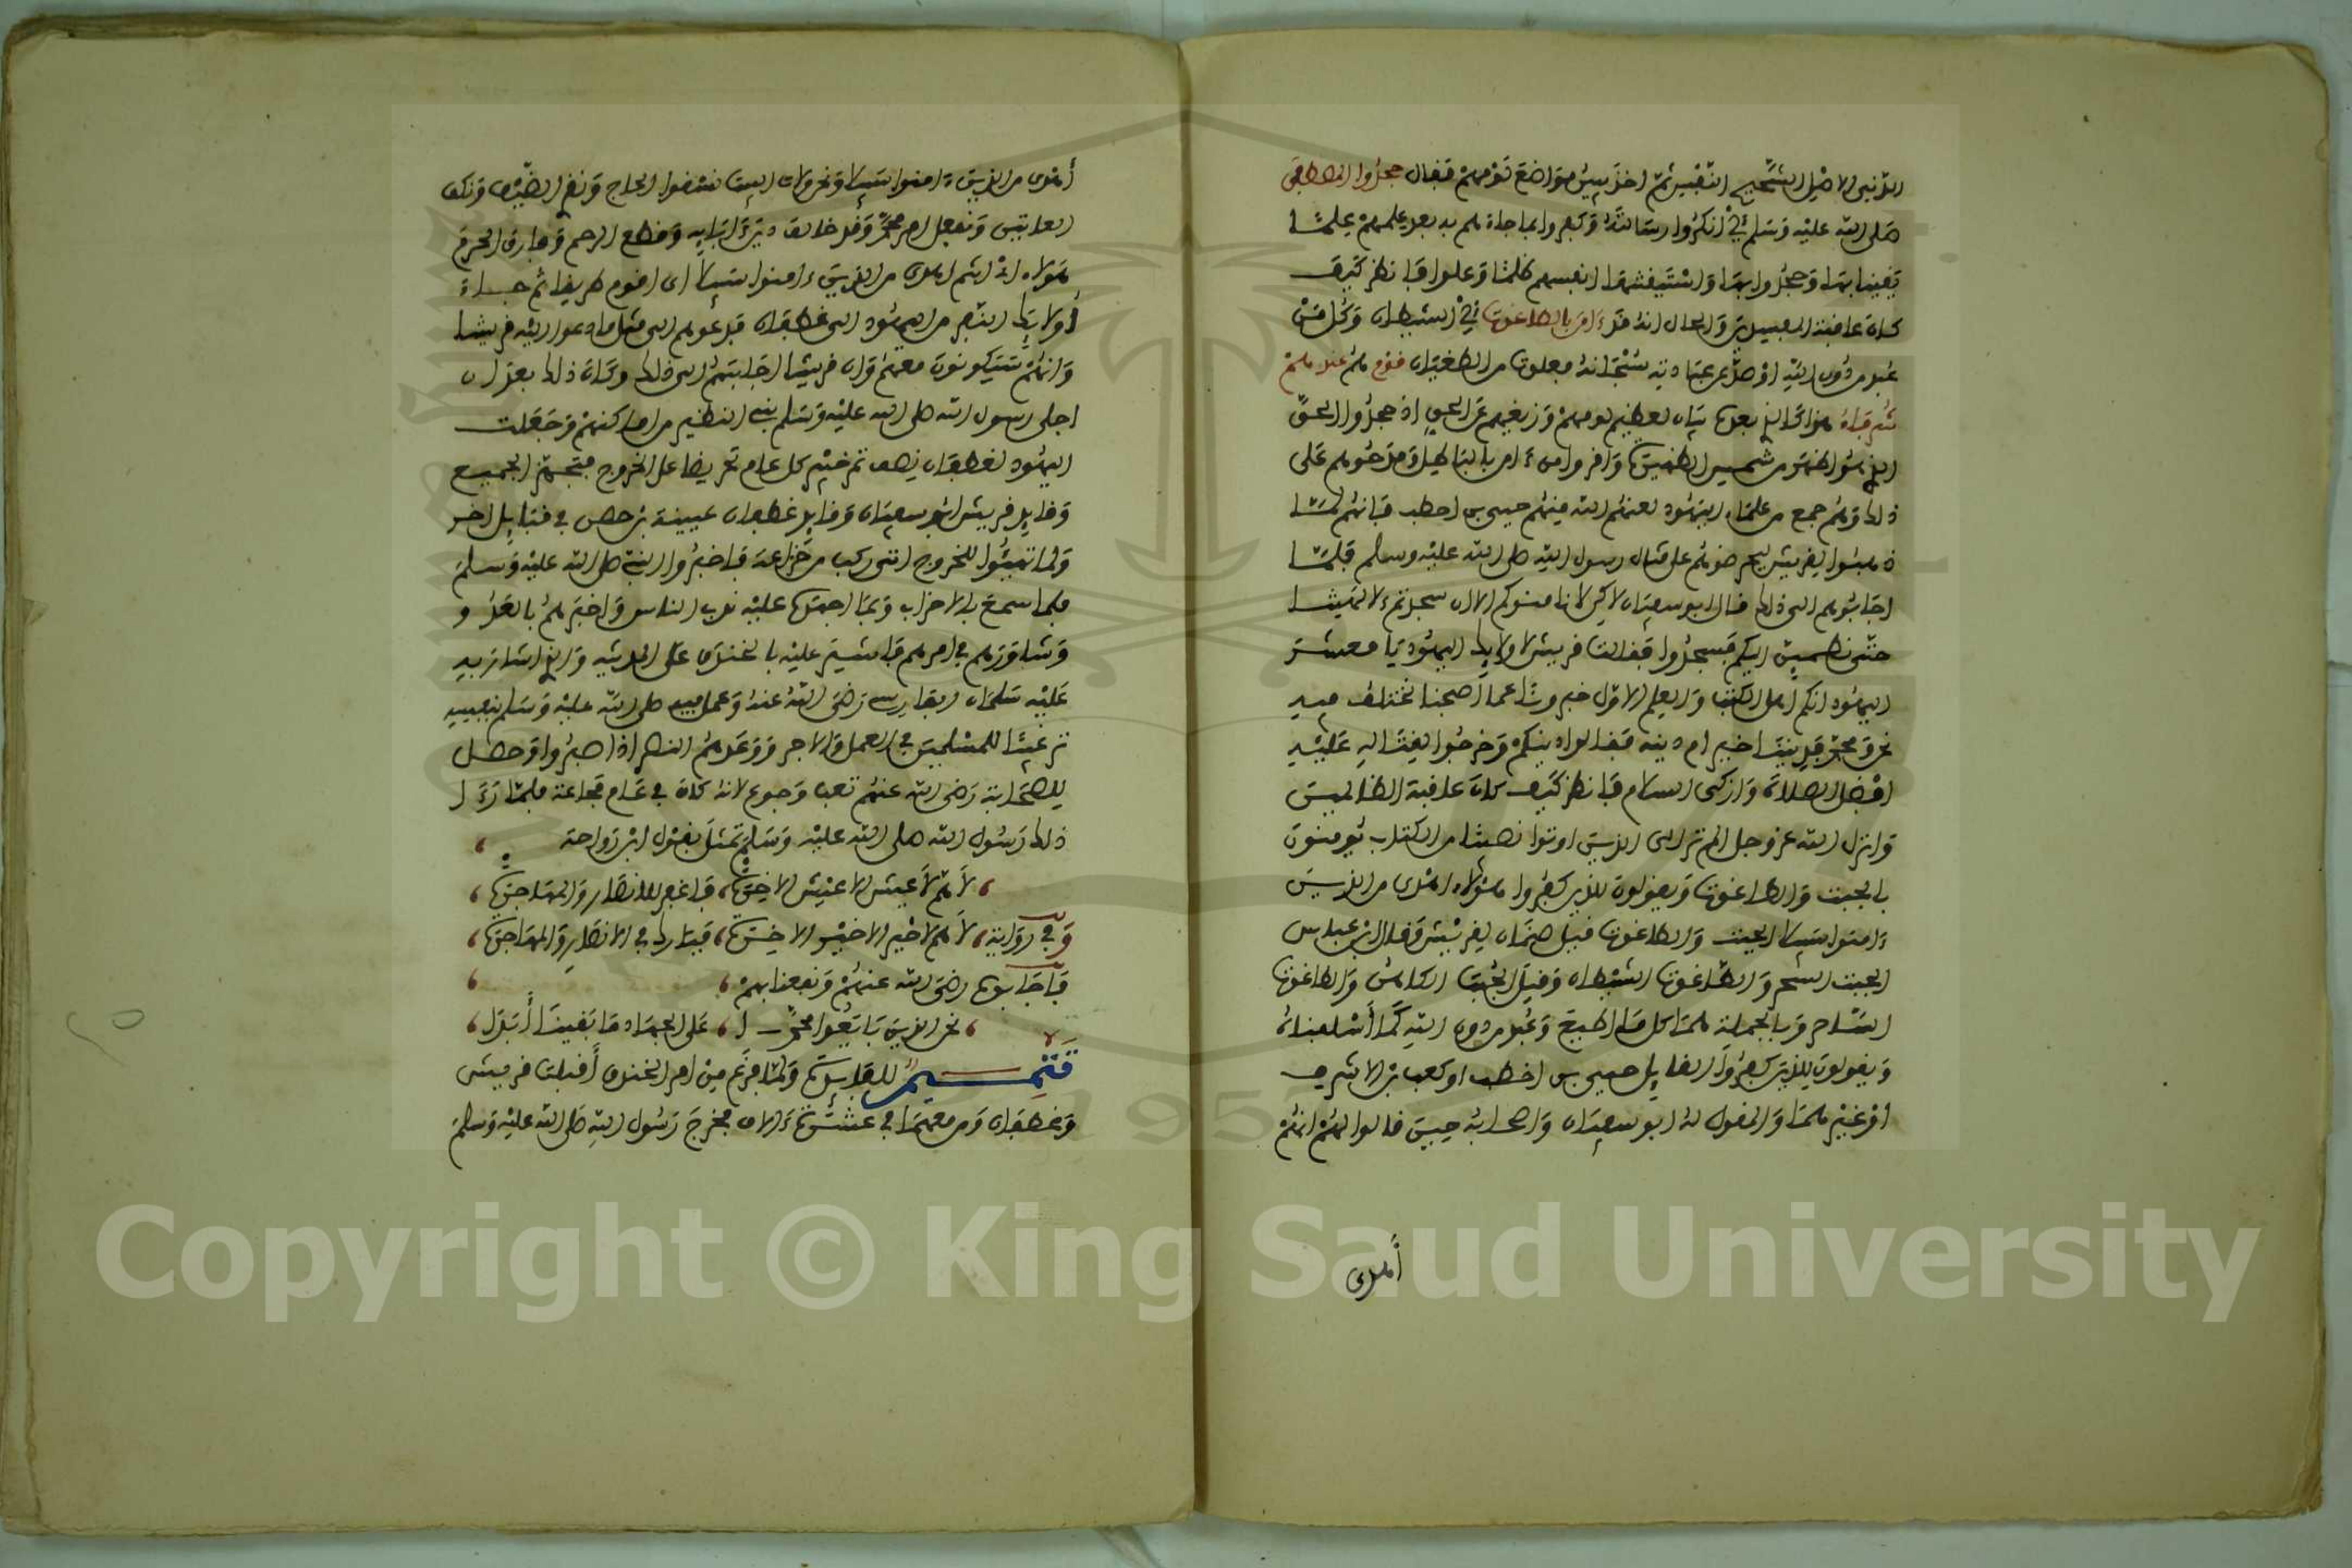 الدنيي الاصيل الشحيح النفيس ثم اخذ يبين مواضع قومهم فقال جحدوا المصطفى
صلى الله عليه وسلم اي انكروا رسالته وكفروا بما جاءهم به بعد علمهم علما
يقينا بها وجحدوا بها واستيقنتها انفسهم ظلما وعلوا فانظر كيف
كان عاقبة المفسدين والحال انه قد ءامن بالطاغوت اي الشيطان وكل من
عبد من دون الله او صد عن عبادته سبحانه فعلوت من الطغيان قوم هم عندهم
شرفاء هذا كالذي بعده بيان لعظيم لومهم وزيغهم عن الحق اذ جحدوا الحق
الذي هو اظهر من شمس الظهيرة واقروا من ءامن بالباطل ومدحوهم على
ذلك وهم جمع من علماء اليهود لعنهم الله منهم حيي بن اخطب فانهم لما
ذهبوا لقريش ليحرضوهم على قتال رسول الله صلى الله عليه وسلم فلما
اجابوهم الى ذلك قال ابو سفيان لاكن لا نامنوكم الا ان سجدتم لالهتنا
حتى نطمين اليكم فسجدوا فقالت قريش لاولايك اليهود يا معشر
اليهود انكم اهل الكتاب والعلم الاول خبرونا عما اصبحنا نختلف فيه
نحن ومحمد فديننا خير ام دينه فقالوا دينكم وخرجوا لقتاله عليه
افضل الصلاة وازكى السلام فانظر كيف كان عاقبة الظالمين
وانزل الله عز وجل الم تر الى الذين اوتوا نصيبا من الكتاب يومنون
بالجبت والطاغوت ويقولون للذين كفروا هؤلاء اهدى من الذين
ءامنوا سبيلا الجبت والطاغوت قيل صنمان لقريش وقال ابن عباس
الجبت السحر والطاغوت الشيطان وقيل الجبت الكاهن والطاغوت
الساحر وبالجملة هما كل ما اطيع وعبد من دون الله كما اسلفناه
ويقولون للذين كفروا القايل حيي بن اخطب او كعب بن الاشرف
او غيرهما والمقول له ابو سفيان واصحابه حين قالوا لهم انهم
أهدى
أهدى من الذين ءامنوا سبيلا ونحن ولاة البيت نسقوا الحاج ونقر الضيف ونفك
العاني ونفعل امر محمد وقد خالف دين ءابايه وقطع الرحم وفارق الحرم
هؤلاء اذ انتم اهدى من الذين ءامنوا سبيلا اي اقوم طريقا ثم جاء
أولايك النفر من اليهود الى غطفان فدعوهم الى مثل ما دعوا اليه قريشا
وانهم سيكونون معهم وان قريشا اجابتهم الى ذلك وكان ذلك بعد ان
اجلى رسول الله صلى الله عليه وسلم بني النظير من اماكنهم وجعلت
اليهود لغطفان نصف تمر خيبر كل عام تحريضا على الخروج فتجهز الجميع
وقايد قريش ابو سفيان وقايد غطفان عيينة بن حصن في قبايل اخر
ولما تهيئوا للخروج اتى ركب من خزاعة فاخبروا النبي صلى الله عليه وسلم
فلما سمع بالاحزاب وبما اجمعوا عليه ندب الناس واخبرهم بالعدو
وشاورهم في امرهم فاشير عليه بالخندق على المدينة والذي اشار به
عليه سلمان الفارسي رضي الله عنه وعمل فيه صلى الله عليه وسلم بنفسه
ترغيبا للمسلمين في العمل والاجر ووعدهم النصر اذا صبروا وحصل
للصحابة رضي الله عنهم تعب وجوع لانه كان في عام مجاعة فلما رءا
ذلك رسول الله صلى الله عليه وسلم تمثل بقول ابن رواحة
لاهم لا عيش الا عيش الاخرة، فاغفر للانصار والمهاجرة
وفي رواية، لاهم لا خير الا خير الاخرة، فبارك في الانصار والمهاجرة
فأجابوه رضي الله عنهم ونفعنا بهم
نحن الذين بايعوا محمدا، على الجهاد ما بقينا أبدا
تتميم للفايدة ولما فرغ من امر الخندق أقبلت قريش
وغطفان ومن معهما في عشرة ءالاف فخرج رسول الله صلى الله عليه وسلم
Copyright © King Saud University